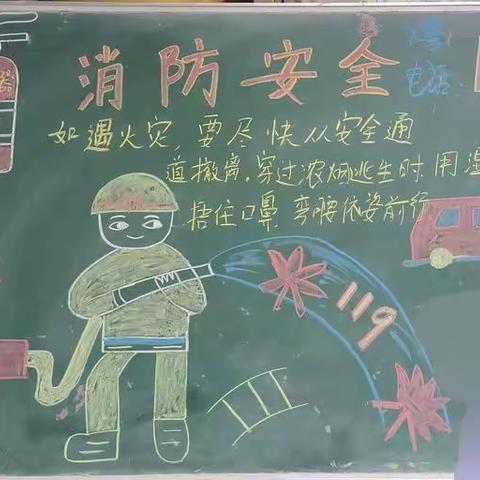 消防安全
火警
电话:
器
如遇火灾,要尽快从安全通
道撤离,穿过浓烟逃生时,用湿
捂住口鼻,弯腰低姿前行
119